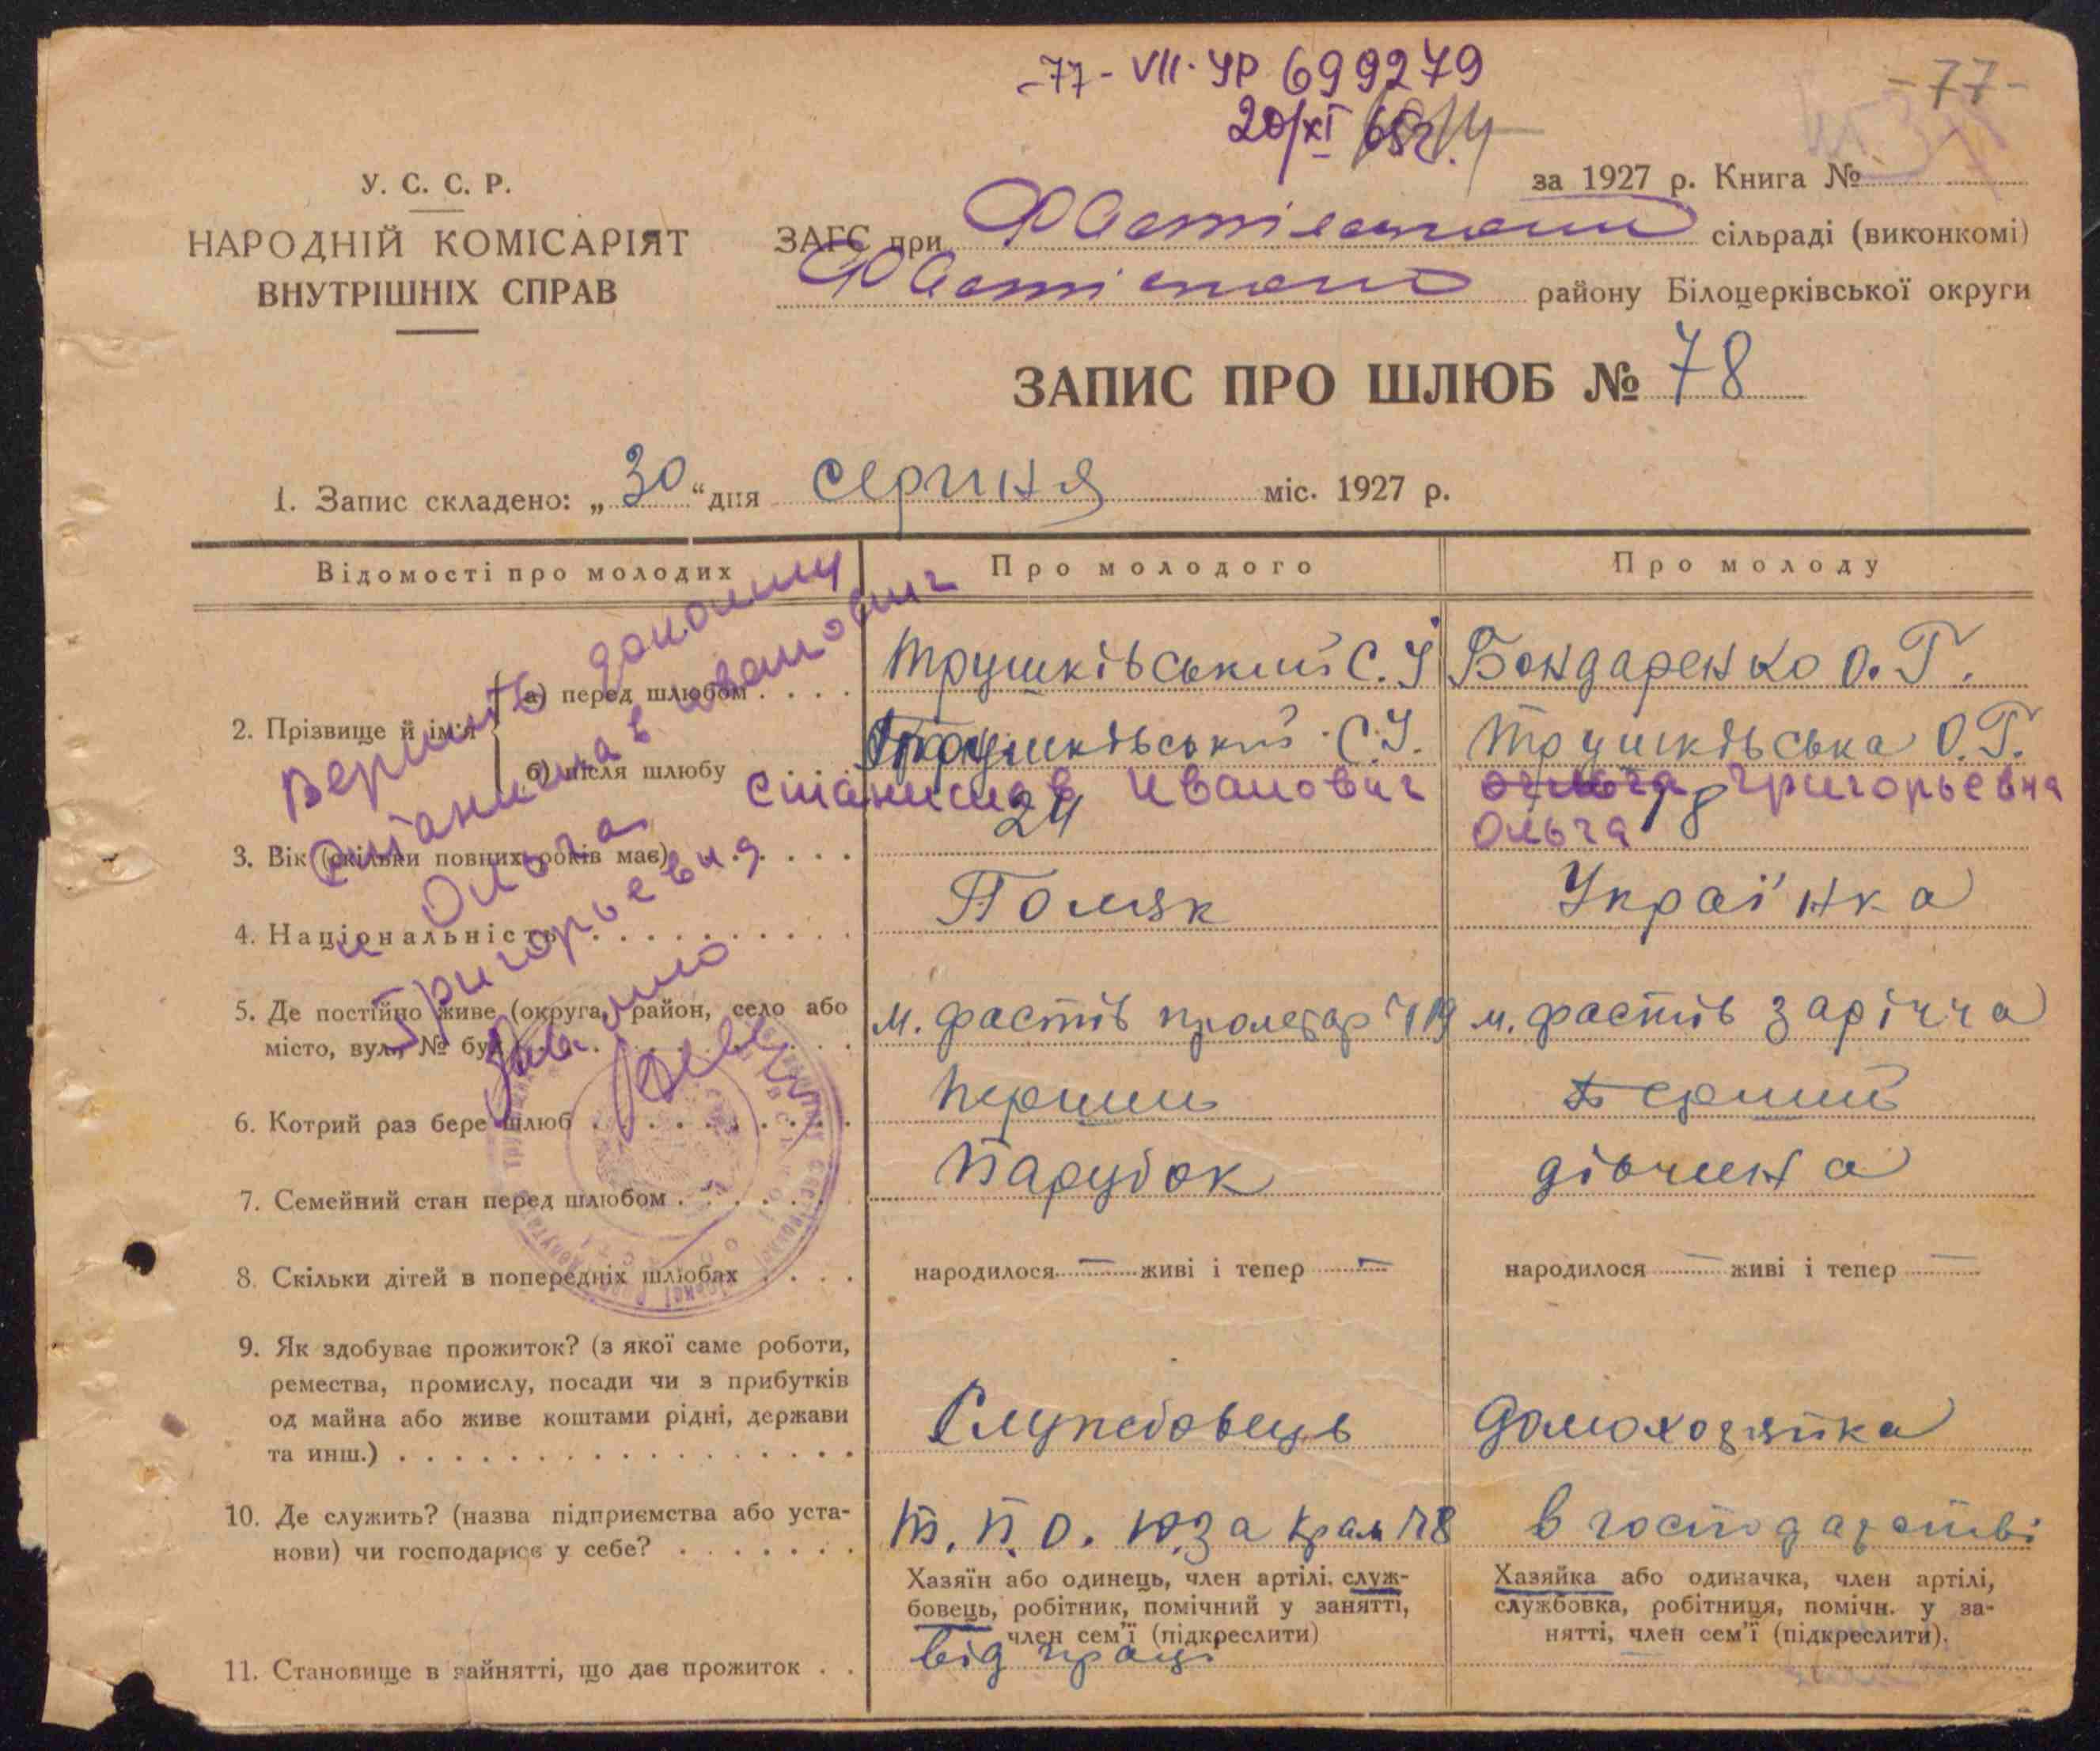 -77- VII-УР 699279
20/XI 65г.
-77-
У. С. С. Р.
НАРОДНІЙ КОМІСАРІЯТ
ВНУТРІШНІХ СПРАВ
за 1927 р. Книга №
ЗАГС при Фастівському сільраді (виконкомі)
Фастівського району Білоцерківської округи
ЗАПИС ПРО ШЛЮБ № 78
1. Запис складено: „30“ дня серпня міс. 1927 р.
Відомості про молодих
Про молодого
Про молоду
2. Прізвище й ім'я
а) перед шлюбом
Трушківський С. І
Бондаренко О. Г.
б) після шлюбу
Трушківський С. І.
Трушківська О. Г.
Станислав Иванович
Григорьевна
Ольга
3. Вік (скільки повних років має)
24
18
4. Національність
Поляк
Українка
5. Де постійно живе (округа, район, село або
місто, вул., № буд.)
м. Фастів пролетар № 19
м. Фастів Заріччя
6. Котрий раз бере шлюб
Перший
Перший
7. Семейний стан перед шлюбом
Парубок
дівчина
8. Скільки дітей в попередніх шлюбах
народилося — живі і тепер —
народилося — живі і тепер —
9. Як здобуває прожиток? (з якої саме роботи,
ремества, промислу, посади чи з прибутків
од майна або живе коштами рідні, держави
та инш.)
Службовець
Домохозяйка
10. Де служить? (назва підприємства або уста-
нови) чи господарює у себе?
Т. П. О. Ю.З а крам № 8
в господарстві
Хазяїн або одинець, член артілі, служ-
бовець, робітник, помічний у занятті,
член сем’ї (підкреслити)
Хазяйка або одиначка, член артілі,
службовка, робітниця, помічн. у за-
нятті, член сем’ї (підкреслити).
11. Становище в зайнятті, що дає прожиток
від праці
Станислав Иванович
и Ольга
Григорьевна